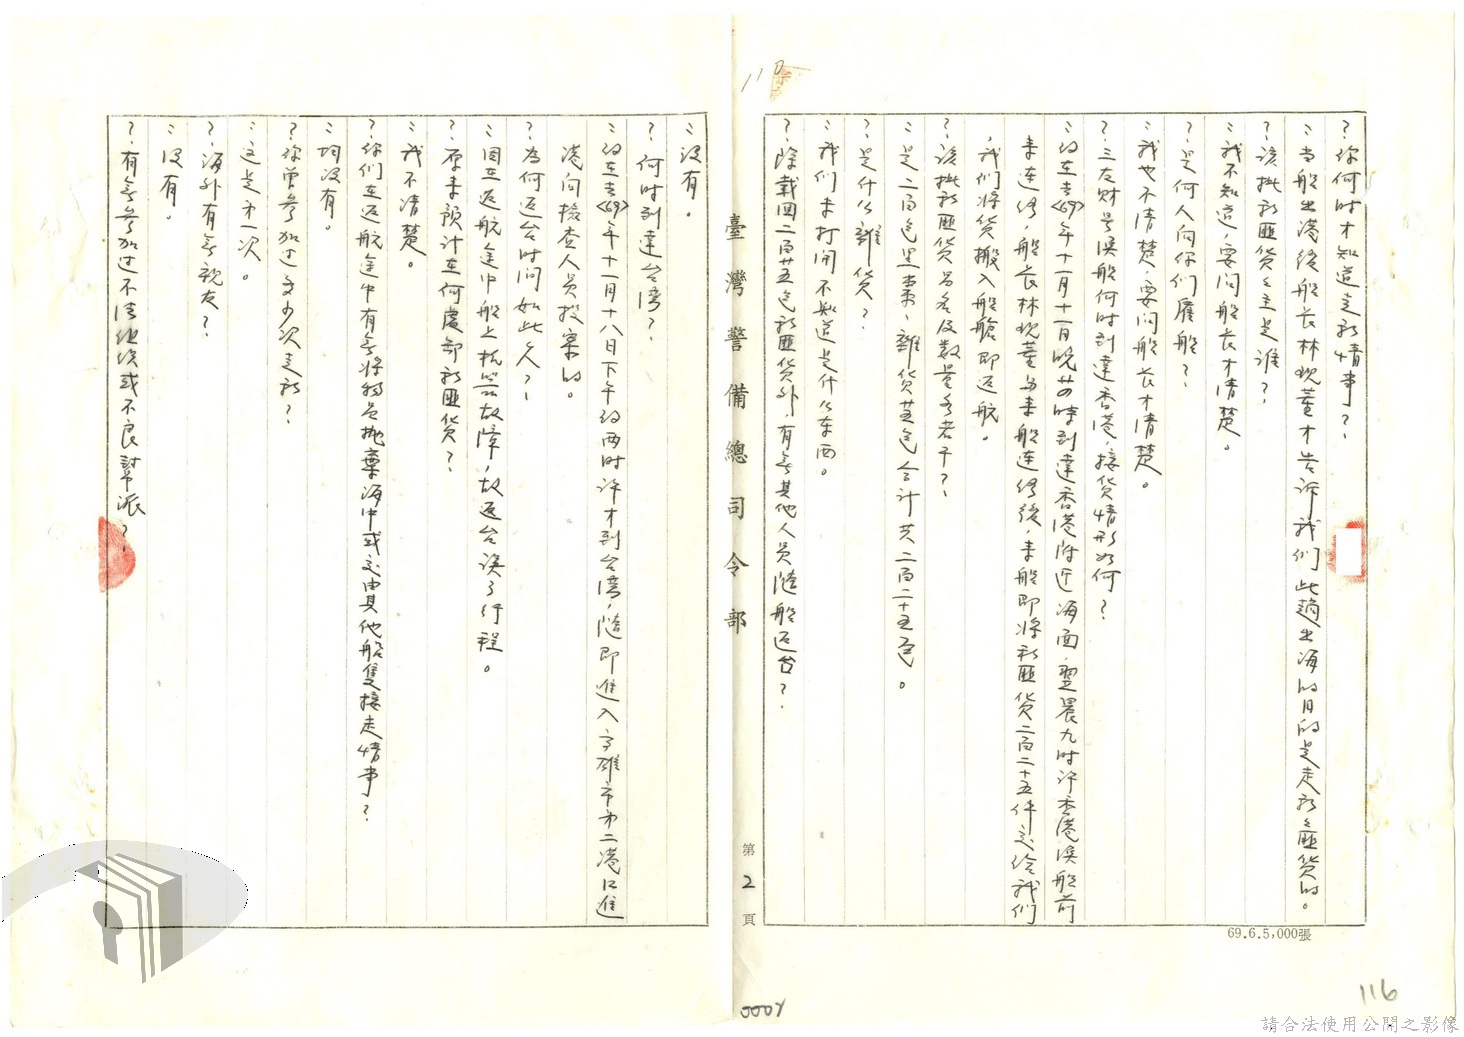 110
?:你何時才知道走私情事?
::当船出港後船長林現董才告訴我們此趟出海的目的是走私匪貨的。
?:該批私匪貨之主是誰?
::我不知道,要问船長才清楚。
?:是何人向你們雇船?
::我也不清楚,要问船長才清楚。
?:三左財号漁船何时到達香港,接货情形如何?
::约在去<69>年十一月十一日晚廿四時到達香港附近海面,翌晨九时许香港漁船前
来連络,船長林現董与来船連络後,来船即將私匪货二百二十五件交给我們
,我們將货搬入船艙即返航。
?:該批私匪货品名及数量各若干?
::是二百包黑棗、雜货廿五包合计共二百二十五包。
?:是什么雜货?
::我們未打開不知道是什么东西。
?:除載回二百廿五包私匪货外,有无其他人員隨船返台?
臺灣警備總司令部
第2頁
::没有。
?:何时到達台湾?
::约在去<69>年十一月十八日下午约两时许才到台湾,隨即進入高雄市第二港口進
港向檢查人員投案的。
?:为何返台时间如此久?
::因在返航途中船上机器故障,故返台误了行程。
?:原来预计在何處卸私匪货?
::我不清楚。
?:你們在返航途中有无將物品抛棄海中或交由其他船隻接走情事?
::均没有。
?:你曾参加过多少次走私?
::这是第一次。
?:海外有无親友?
::没有。
?:有无参加过不法组织或不良幫派?
69.6.5,000張
116
請合法使用公開之影像